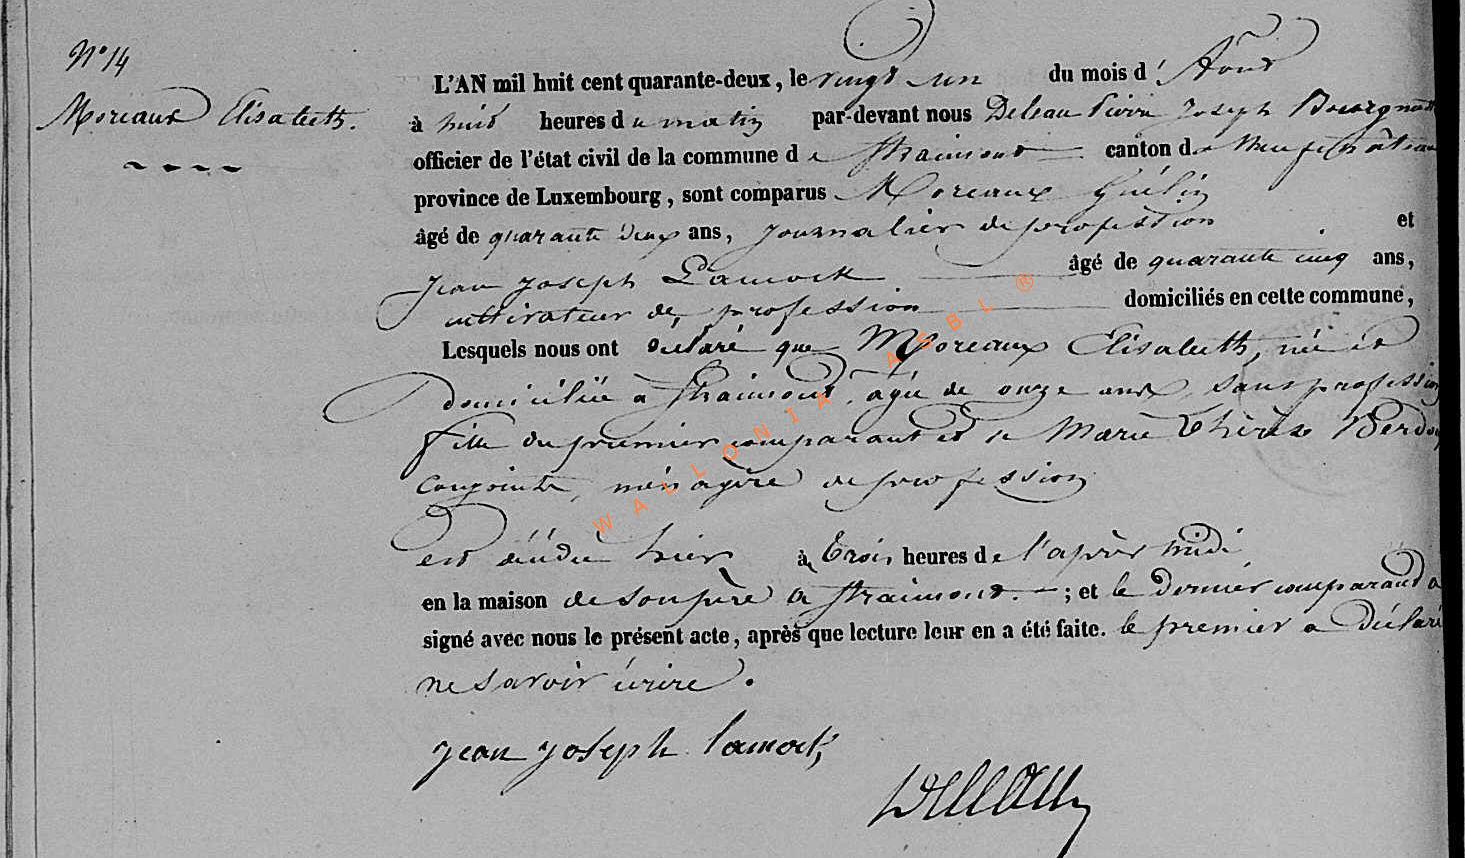 N° 14
Moreaux Elisabeth.
L'AN mil huit cent quarante-deux, le vingt un du mois d'Août
à huit heures du matin par-devant nous Deleau Pierre Joseph
officier de l'état civil de la commune de Straimont canton de Neufchâteau
province de Luxembourg, sont comparus Moreaux Ghélin
âgé de quarante deux ans, journalier de profession et
Jean Joseph Lamock âgé de quarante cinq ans,
cultivateur de profession domiciliés en cette commune,
Lesquels nous ont déclaré que Moreaux Elisabeth, née et
domiciliée à Straimont, agée de onze ans, sans profession
fille du premier comparant et de Marie Thérèse
conjointe, ménagère de profession
est décédée hier à trois heures de l'après midi
en la maison de son père à Straimont. ; et le dernier comparant a
signé avec nous le présent acte, après que lecture leur en a été faite. le premier a déclaré
ne savoir écrire.
jean joseph lamock
Deleau
WALLONIA ASBL ®